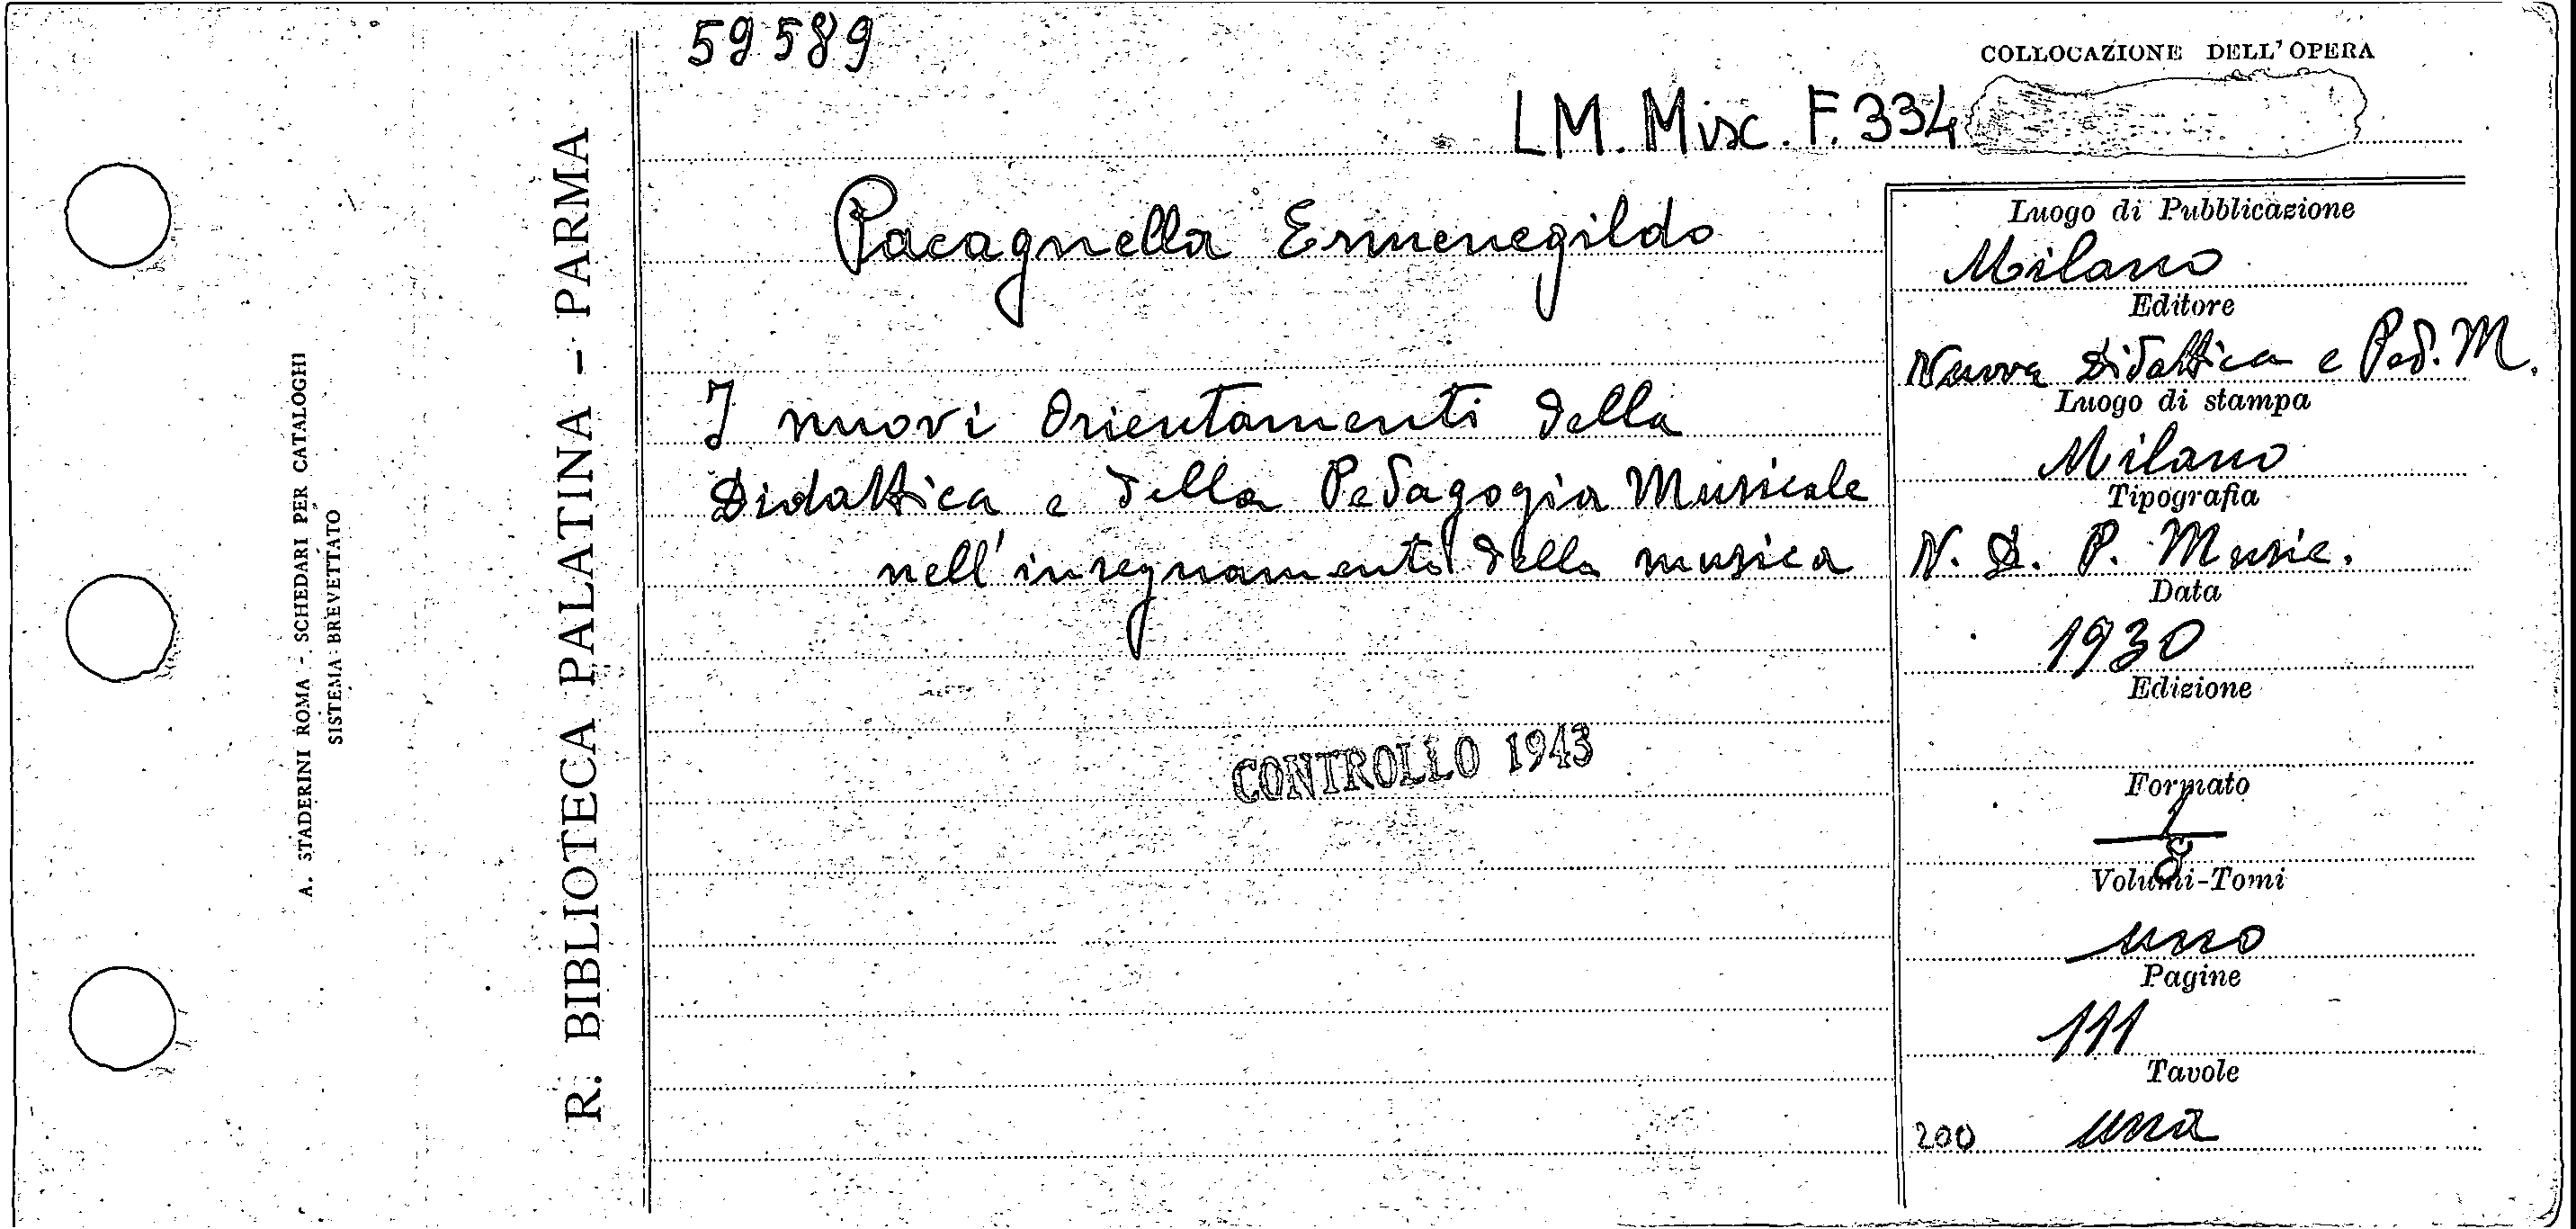 59589
COLLOCAZIONE DELL'OPERA
LM. Misc. F. 334
Pacagnella Ermenegildo
I nuovi Orientamenti della
Didattica e della Pedagogia Musicale
nell'insegnamento della musica
CONTROLLO 1943
Luogo di Pubblicazione
Milano
Editore
Nuova Didattica e Ped. M.
Luogo di stampa
Milano
Tipografia
N. D. P. Music.
Data
1930
Edizione
Formato
1/8
Volumi-Tomi
uno
Pagine
111
Tavole
200 una
R. BIBLIOTECA PALATINA - PARMA
A. STADERINI ROMA - SCHEDARI PER CATALOGHI
SISTEMA BREVETTATO